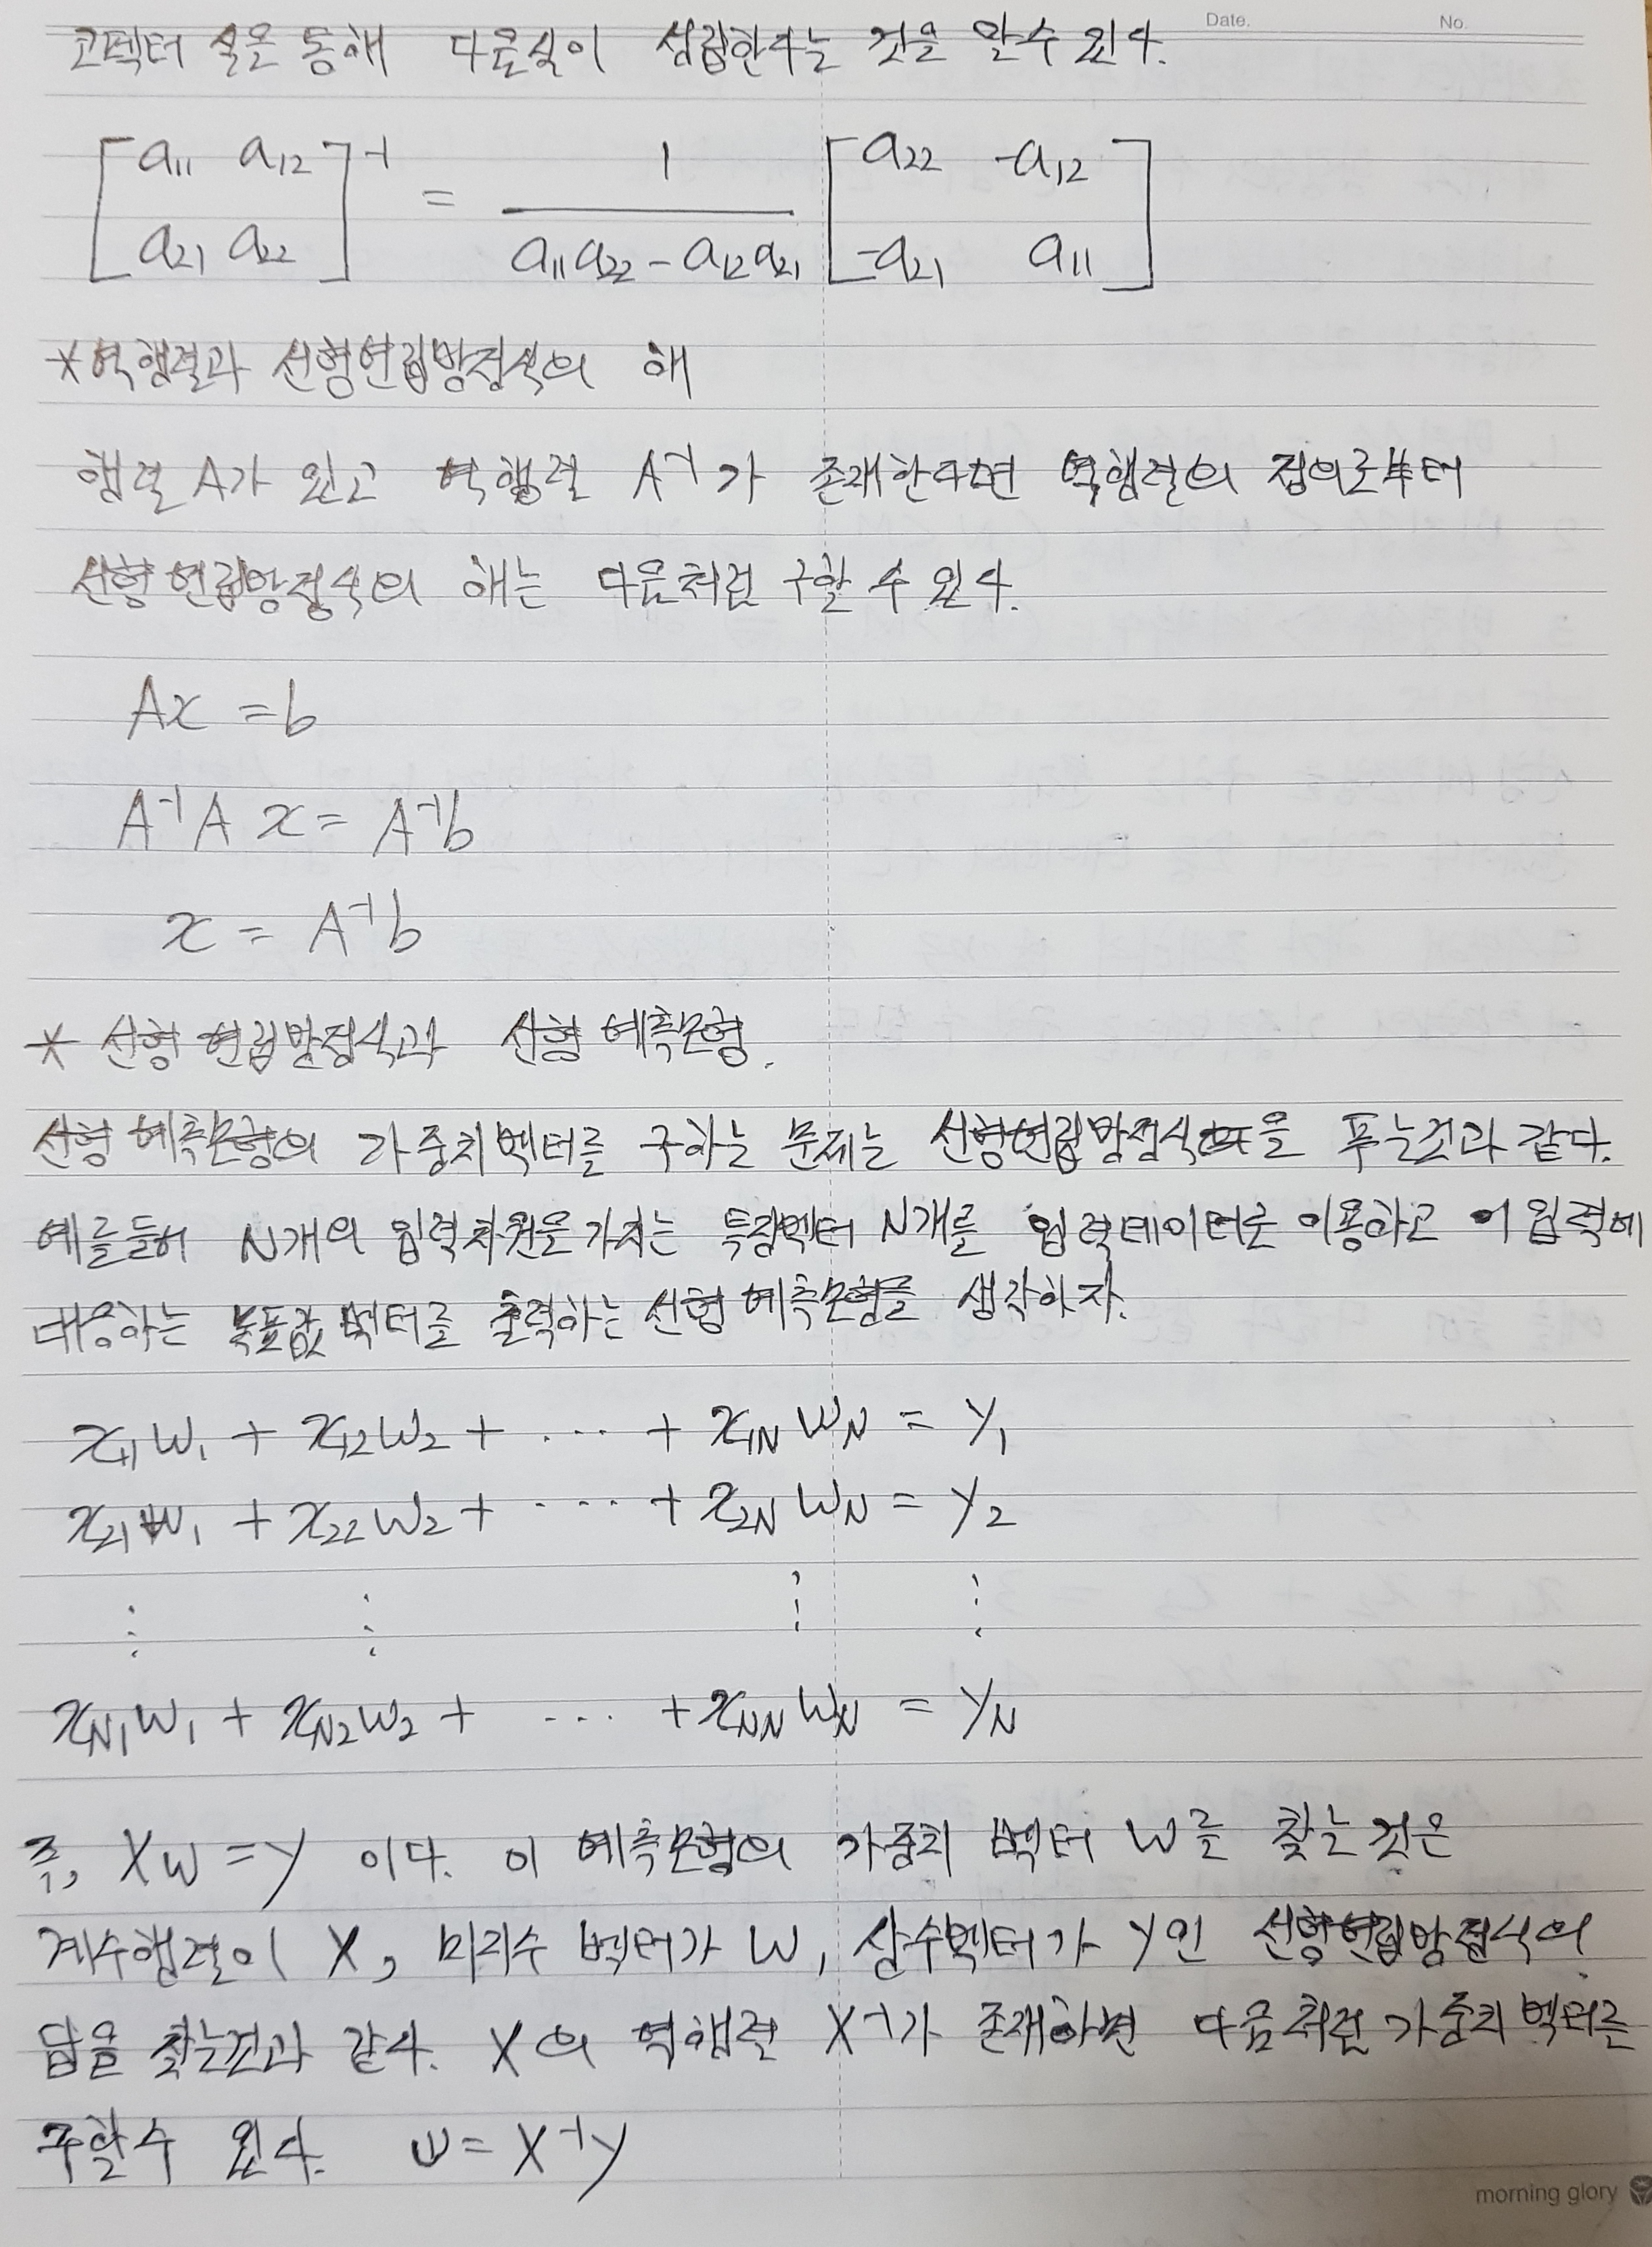 Date. No.
코펙터 식을 통해 다음식이 성립한다는 것을 알수 있다.
[a11 a12; a21 a22]^-1 = 1 / (a11a22 - a12a21) [a22 -a12; -a21 a11]
*역행렬과 선형연립방정식의 해
행렬 A가 있고 역행렬 A^-1가 존재한다면 역행렬의 정의로부터
선형 연립방정식의 해는 다음처럼 구할 수 있다.
Ax = b
A^-1 A x = A^-1 b
x = A^-1 b
* 선형 연립방정식과 선형 예측모형.
선형 예측모형의 가중치벡터를 구하는 문제는 선형연립방정식을 푸는것과 같다.
예를들어 N개의 입력차원을 가지는 특징벡터 N개를 입력데이터로 이용하고 이 입력에
대응하는 목표값 벡터를 출력하는 선형 예측모형를 생각하자.
x11 w1 + x12 w2 + ... + x1N wN = y1
x21 w1 + x22 w2 + .... + x2N wN = y2
⋮ ⋮ ⋮ ⋮
xN1 w1 + xN2 w2 + ... + xNN wN = yN
즉, Xw = y 이다. 이 예측모형의 가중치 벡터 w를 찾는 것은
계수행렬이 X, 미지수 벡터가 w, 상수벡터가 y인 선형연립방정식의
답을 찾는것과 같다. X의 역행렬 X^-1가 존재하면 다음처럼 가중치 벡터를
구할수 있다. w = X^-1 y
morning glory